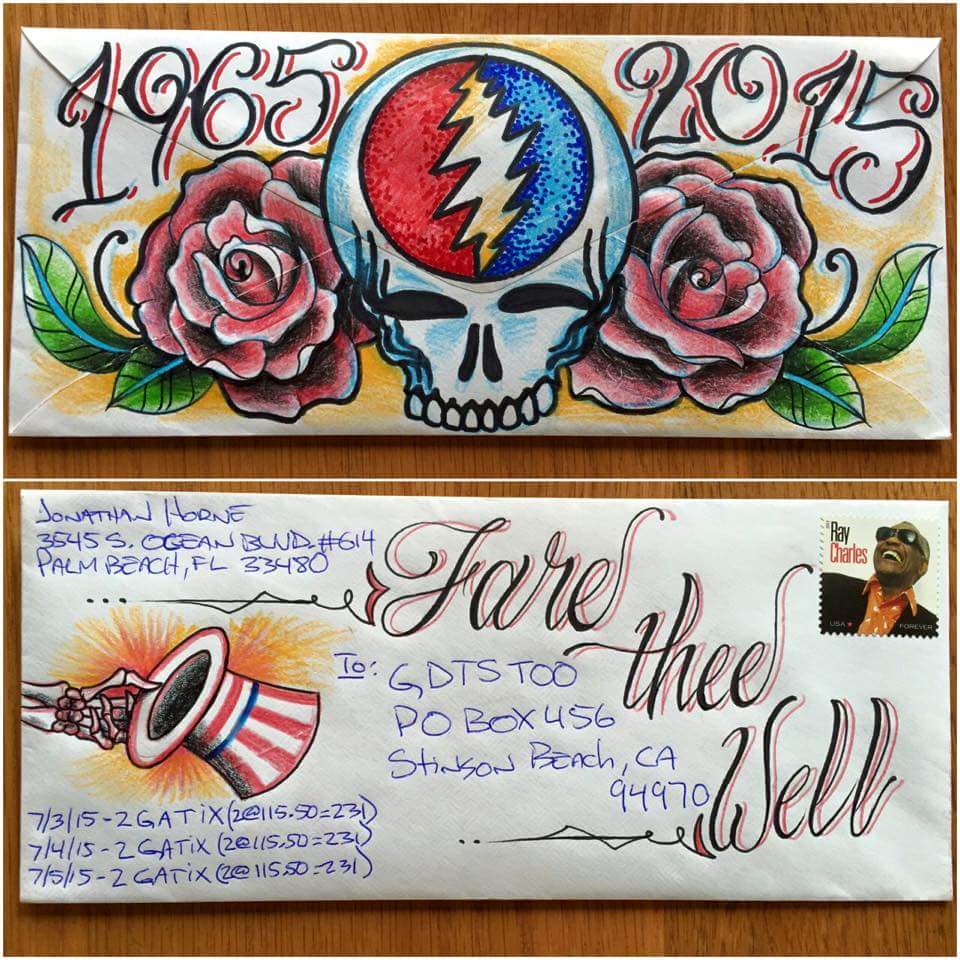 1965 2015
JONATHAN HORNE
3545 S. OCEAN BLVD. #614
PALM BEACH, FL 33480
Fare
thee
Well
Ray
Charles
USA FOREVER
TO: GDTSTOO
PO BOX 456
STINSON BEACH, CA
94970
7/3/15-2 GA TIX (2@115.50=231)
7/4/15-2 GA TIX (2@115.50=231)
7/5/15-2 GA TIX (2@115.50=231)